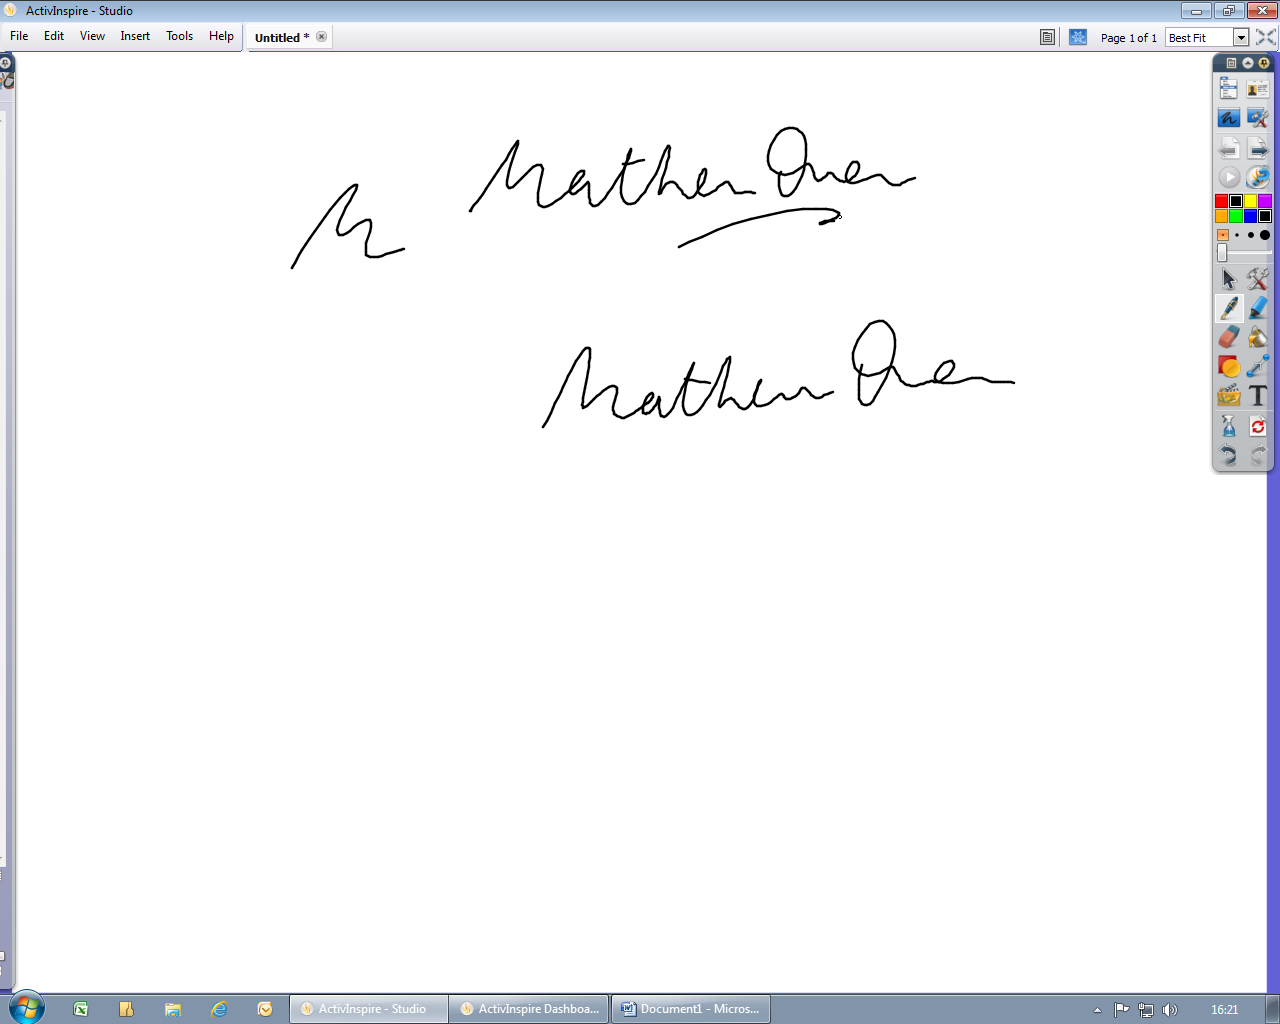 ActivInspire - Studio
File Edit View Insert Tools Help Untitled * Page 1 of 1 Best Fit
Mathew Owen
M
Mathew Owen
T
ActivInspire - Studio ActivInspire Dashboa... Document1 - Micros... 16:21